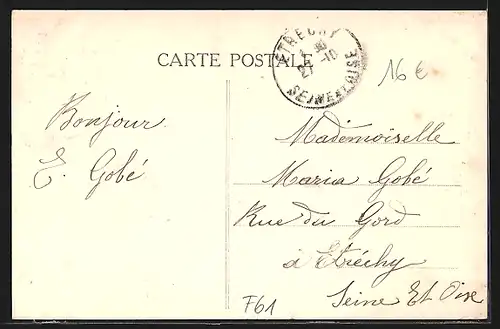 CARTE POSTALE
ETRECHY
27 -10
SEINE ET OISE
16 €
Bonjour
E. Gobé
Mademoiselle
Maria Gobé
Rue du Gord
à Etréchy
Seine Et Oise
F61